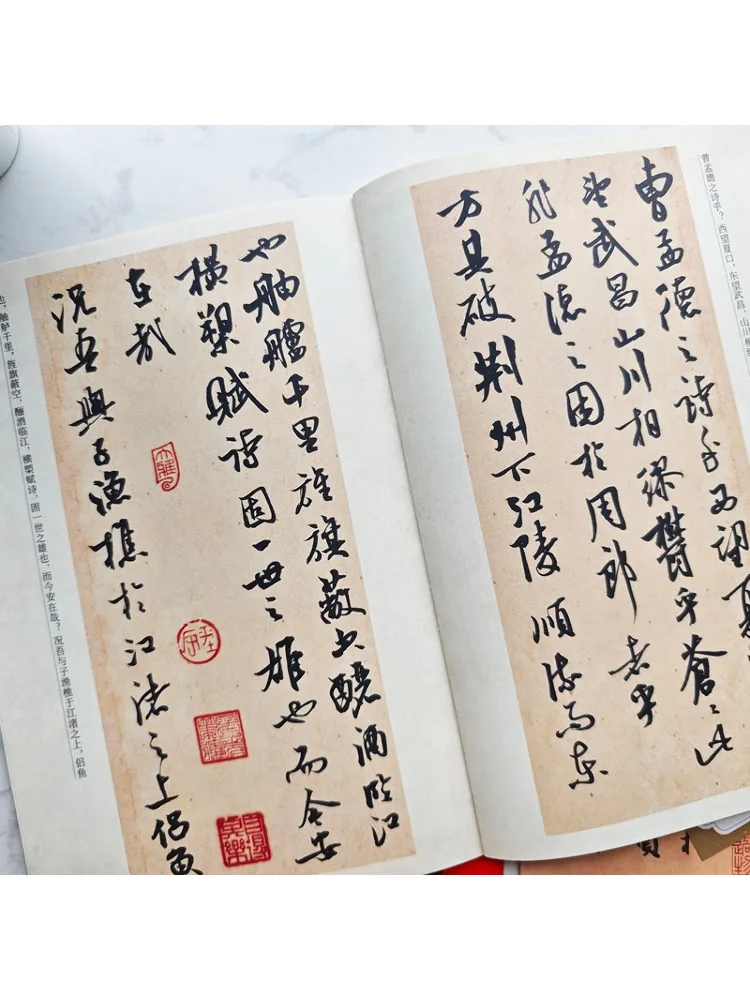 曹孟德之诗乎？西望夏口，东望武昌，山川相缪
曹孟德之詩乎西望夏
望武昌山川相繆鬱乎蒼〻此
非孟德之困於周郎者乎
方其破荊州下江陵順流而東
也舳艫千里旌旗蔽空釃酒臨江
橫槊賦詩固一世之雄也而今安
在哉
況吾與子漁樵於江渚之上侶魚
也，舳舻千里，旌旗蔽空，酾酒临江，横槊赋诗，固一世之雄也，而今安在哉？况吾与子渔樵于江渚之上，侣鱼